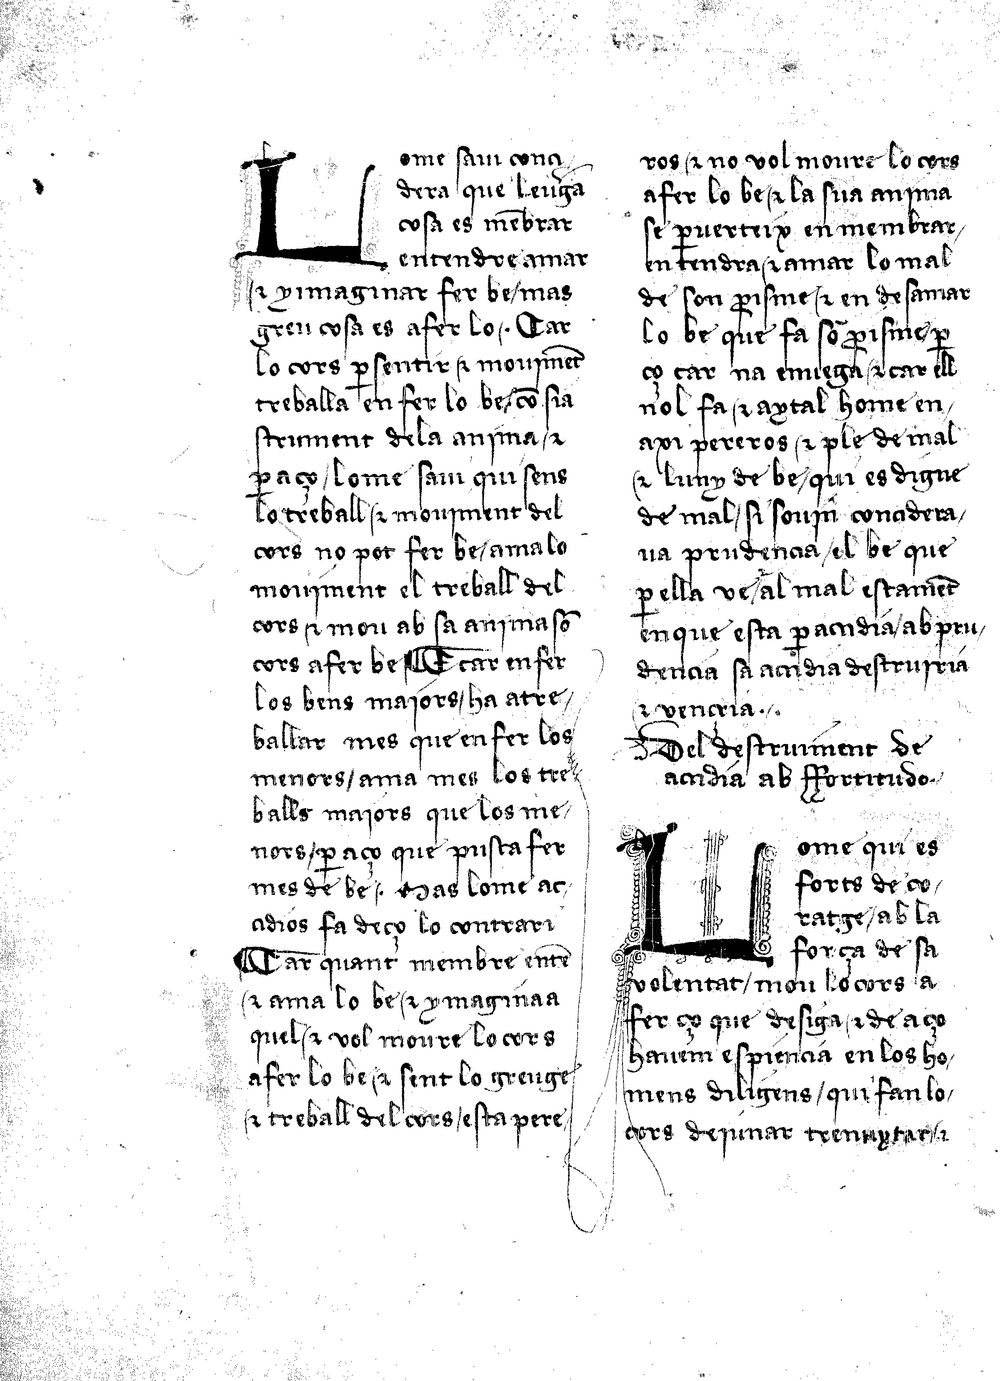 Lome saui conci/
dera que leugᷓa
cosa es mēbrar
entendre amar
/⁊ ymaginar fer be/mas
greu cosa es afer lo/. Car
lo cors ꝑ sentir/⁊ mouimēt
treballa en fer lo be/cō sia
strument dela anima/⁊
ꝑ aço/lome saui qui sens
lo treball/⁊ mouiment del
cors no pot fer be/ama lo
mouiment el treball del
cors/⁊ mou ab sa anima sō
cors afer be/E car en fer
los bens maiors/ha atre/
ballar mes que en fer los
menors/ama mes los tre/
balls maiors que los me/
nors/ꝑ aço que pusca fer
mes de be/. Mas lome ac/
cidios fa deço lo contrari
Car quant membre entē
/⁊ ama lo be/⁊ ymaginaa
quel/⁊ vol moure lo cors
afer lo be/⁊ sent lo greuge
/⁊ treball del cors/esta pere/
ros/⁊ no vol moure lo cors
afer lo be/⁊ la sua anima
se ꝑuerteix en membrar/
entendra/⁊ amar lo mal
de son ꝓisme/⁊ en desamar
lo be que fa sō ꝓisme/ꝑ
ço car na enuega/⁊ car ell
nol fa/⁊ aytal home en/
axi pereros/⁊ ple de mal
/⁊ luny de be/qui es digne
de mal/si souīn concidera/
ua prudencia/el be que
ꝑ ella ve/al mal estamēt
en que esta ꝑ accidia/ab pru/
dencia sa accidia destruiria
⁊ venceria.
Del destruiment de
accidia ab ffortitudo.
Lome qui es
forts de co/
ratge/ab la
força de sa
volentat/mou lo cors a
fer ço que desiga/⁊ de aço
hauem espiencia en los ho/
mens diligens/qui fan lo/
cors dejunar trenuytar/⁊